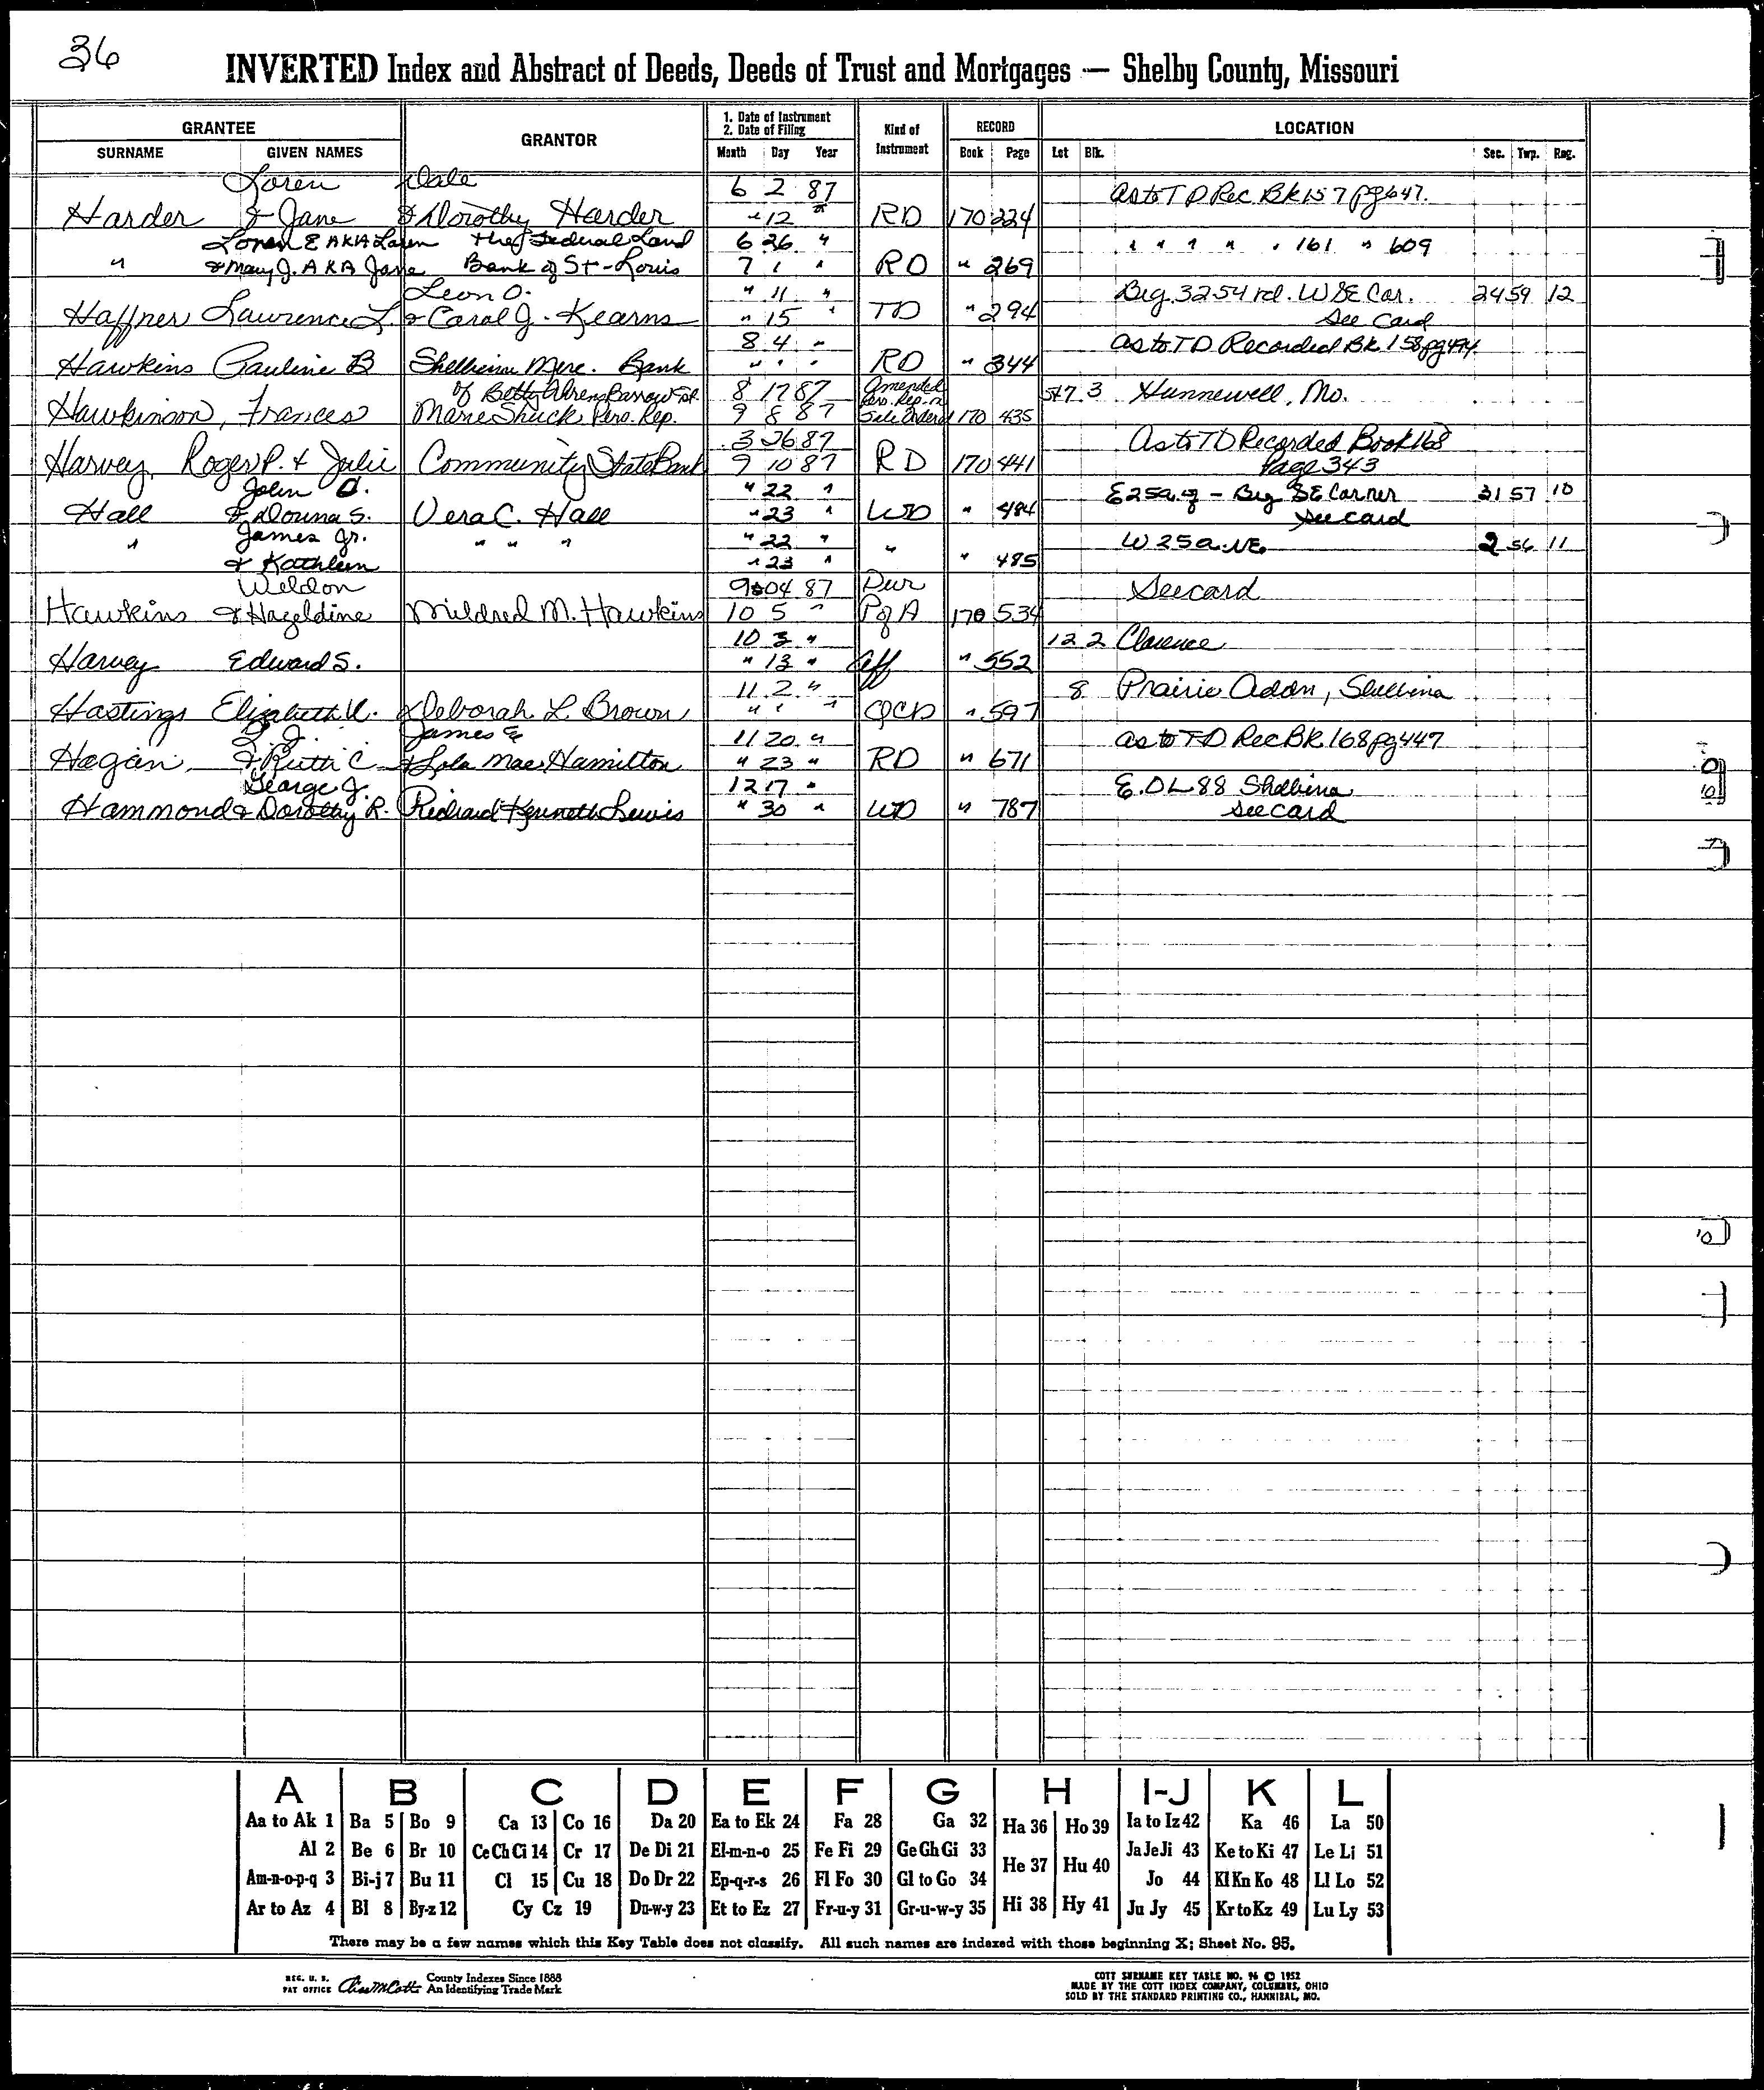 36
INVERTED Index and Abstract of Deeds, Deeds of Trust and Mortgages — Shelby County, Missouri
GRANTEE GRANTOR 1. Date of Instrument 2. Date of Filing Kind of Instrument RECORD LOCATION
SURNAME GIVEN NAMES Month Day Year Book Page Lot Blk. Sec. Twp. Rng.
Loren Dale 6 2 87 As to T D Rec Bk 157 pg 647.
Harder & Jane & Dorothy Harder " 12 " RD 170 224
Loren E AKA Loren The Federal Land 6 26 " " " " " " 161 " 609
" & Mary J. AKA Jane Bank of St-Louis 7 1 " RD " 269
Leon O. " 11 " Beg. 32 54 rd. W SE Cor. 24 59 12
Haffner Lawrence L. & Carol J. Kearns " 15 " TD " 294 See Card
8 4 " As to TD Recorded Bk 158 pg 494
Hawkins Pauline B Shelbina Merc. Bank " " " RD " 344
of Betty Ahrens Barrow Est. 8 17 87 Amended Pers. Rep. 5&7 3 Hunnewell, Mo.
Hawkinson, Frances Marie Shuck Pers. Rep. 9 8 87 Sale Ordered 170 435
3 26 87 As to TD Recorded Book 168
Harvey Roger P. & Julie Community State Bank 9 10 87 RD 170 441 Page 343
John O. " 22 " E 25a. of - Beg SE Corner 31 57 10
Hall & Donna S. Vera C. Hall " 23 " WD " 484 See card
James Jr. " 22 " W 25a. NE 2 56 11
" & Kathleen " " " " 23 " " " 485
Weldon 9 04 87 Dur See card
Hawkins & Hazeldine Mildred M. Hawkins 10 5 " P of A 170 534
10 3 " 12 2 Clarence
Harvey Edward S. " 13 " Aff " 552
11 2 " 8 Prairie Addn, Shelbina
Hastings Elizabeth V. Deborah L. Brown " " " QCD " 597
James E 11 20 " As to TD Rec BK 168 pg 447
Hogan & Ruth C & Lola Mae Hamilton " 23 " RD " 671
George J. 12 17 " E. OL 88 Shelbina
Hammond & Dorothy R. Richard Kenneth Lewis " 30 " WD " 787 See Card
A B C D E F G H I-J K L
Aa to Ak 1 Ba 5 Bo 9 Ca 13 Co 16 Da 20 Ea to Ek 24 Fa 28 Ga 32 Ha 36 Ho 39 Ia to Iz 42 Ka 46 La 50
Al 2 Be 6 Br 10 Ce Ch Ci 14 Cr 17 De Di 21 El-m-n-o 25 Fe Fi 29 Ge Gh Gi 33 He 37 Hu 40 Ja Je Ji 43 Ke to Ki 47 Le Li 51
Am-n-o-p-q 3 Bi-j 7 Bu 11 Cl 15 Cu 18 Do Dr 22 Ep-q-r-s 26 Fl Fo 30 Gl to Go 34 Jo 44 Kl Kn Ko 48 Ll Lo 52
Ar to Az 4 Bl 8 By-z 12 Cy Cz 19 Du-w-y 23 Et to Ez 27 Fr-u-y 31 Gr-u-w-y 35 Hi 38 Hy 41 Ju Jy 45 Kr to Kz 49 Lu Ly 53
There may be a few names which this Key Table does not classify. All such names are indexed with those beginning X; Sheet No. 95.
REG. U. S. PAT OFFICE County Indexes Since 1888 An Identifying Trade Mark
COTT SURNAME KEY TABLE NO. 96 © 1952
MADE BY THE COTT INDEX COMPANY, COLUMBUS, OHIO
SOLD BY THE STANDARD PRINTING CO., HANNIBAL, MO.